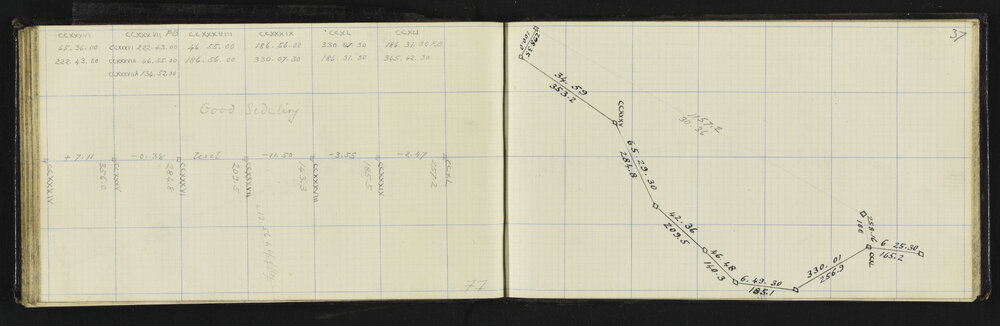 CCXXXVI
CCXXXVII FB
CCXXXVIII
CCXXXIX
CCXL
CCXLI
65.36.00
CCXXXVI 222.43.00
46.55.00
186.56.00
330.07.30
186.31.30 FB
222.43.00
CCXXXVIII 46.55.00
186.56.00
330.07.30
186.31.30
345.42.30
CCXXXVIIA 134.52.00
Good Sideling
+7.11
-0.38
Level
-11.50
-3.55
-2.47
CCXXXIV
356.0
CCXXXV
284.8
CCXXXVI
209.5
CCXXXVII
143.3
CCXXXVIII
185.5
CCXXXIX
257.2
CCXL
77
37
258.55
100.0
34.59
353.2
CCXXXV
11.57.2
30.36
65.29.30
284.8
42.36
209.5
46.48
140.3
6.49.30
185.1
330.01
256.9
258.16
100
CCXL
6 25.30
165.2